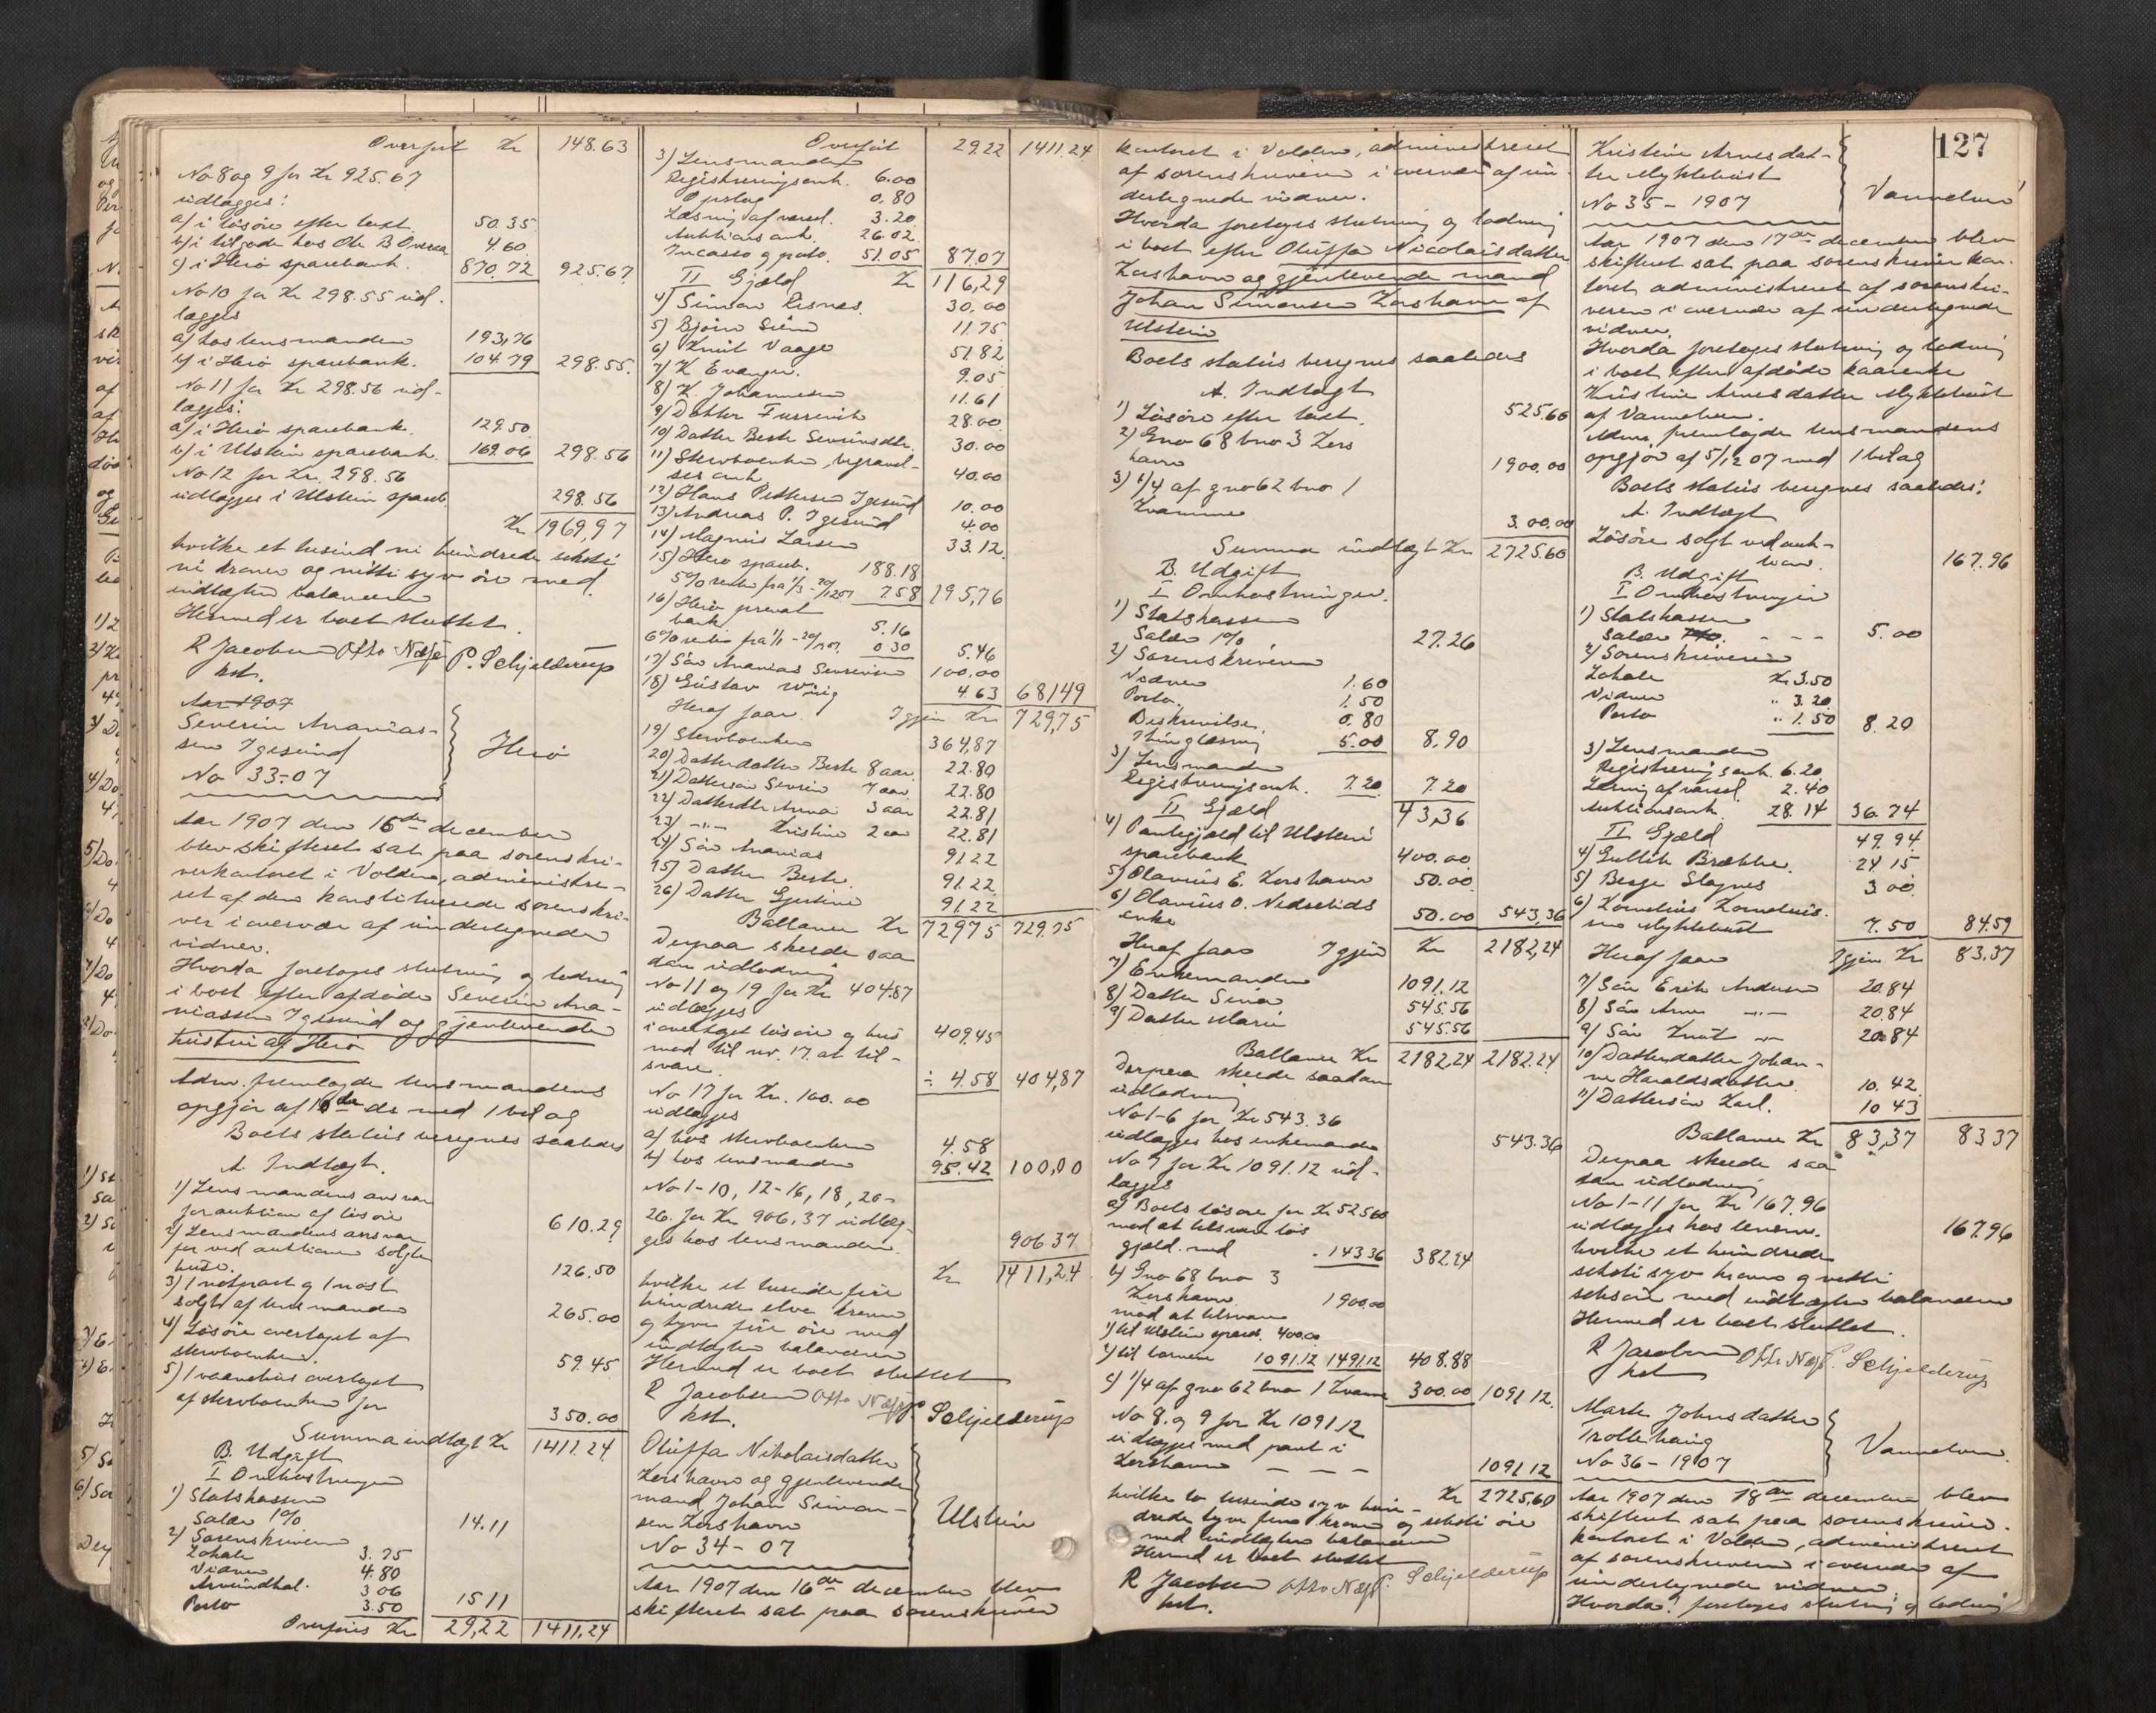 Overført Kr 148.63
No 8 og 9 for Kr 925.67
udlægges:
a) i løsøre efter taxt 50.35
b) i tilgode hos Ole B 4.60
c) i Herø sparebank. 870.72 925.67
No 10 for Kr 298.55 ud-
lægges
a) hos lensmanden 193,76
b) i Herø sparebank. 104.79 298.55.
No 11 for Kr 298.56 ud-
lægges:
a) i Herø sparebank. 129.50
b) i Ulstein sparebank 169.06 298.56
No 12 for Kr. 298.56
udlægges i Ulstein spareb. 298.56
Kr 1969,97
hvilke et tusind ni hundrede seksti
ni kroner og nitti syv øre med
indtægten balancerer
Hermed er boet sluttet.
R Jacobsen Otto Næss P. Schjelderup
kst.
Aar 1907
Severin Ananias-
sen Igesund
No 33-07
Herø
Aar 1907 den 16de december
blev skifteret sat paa sorenskri-
verkontoret i Volden, administre-
ret af den konstituerede sorenskri-
ver i overvær af undertegnede
vidner.
Hvorda foretoges slutning og lodning
i boet efter afdøde Severin Ana-
niassen Igesund og gjenlevende
hustru af Herø
Adm. fremlagde lensmandens
opgjør af 16de ds med 1 bilag
Boets status beregnes saaledes
A. Indtægt.
1) Lensmandens ansvar
for auktion af løsøre 610.29
2) Lensmandens ansvar
for ved auktionen solgte
huse. 126.50
3) 1 notpart og 1 nøst
solgt af lensmanden 265.00
4) Løsøre overtaget af
stervboenken. 59.45
5) 1 vaanehus overtaget
af stervboenken for 350.00
Summa indtægt Kr 1411.24
B. Udgift
I Omkostninger
1) Statskassen
Salær 1% 14.11
2) Sorenskriveren
Lokale 3.75
Vidner 4.80
3 06
Porto 3.50 15 11
Overføres Kr 29,22 1411,24
Overført 29.22 1411.24
3) Lensmanden
Registreringsank. 6.00
Opslag 0.80
Læsning af varsel. 3.20
Auktions ank. 26.02
Incasso og porto. 51.05 87.07
II Gjæld Kr 116,29
4) Simon Risnes. 30.00
5) Bjørn 11.75
6) Knut Vaage 51.82
7) K 9.05
8) K. Johannesen 11.61
9) Doktor 28.00
10) Datter Berte Sevrinsdtr. 30.00
11) Stervboenken, begravel-
ses ank. 40.00
12) Hans Pettersen Igesund 10.00
13) Andreas P. Igesund 4.00
14) Magnus Larsen 33.12
15) Herø spareb. 188.18
5% renter fra 1/3 - 20/12 07 7 58 195,76
16) Herø privat
bank 5.16
6% renter fra 1/1 - 20/12 07. 0 30 5.46
17) Søn Ananias Severinsen 100,00
18) Gustav Wiig 4.63 681 49
Heraf faar Igjen Kr 729,75
19) Stervboenken 364,87
20) Datterdatter Berte 8 aar 22.80
21) Dattersøn Severin 7 aar 22.80
22) Datterdtr Anna 3 aar 22.81
23) —"— Kristine 2 aar 22.81
24) Søn Ananias 91 22
25) Datter Berte 91.22
26) Datter Gjertine 91 22
Ballance Kr 729 75 729.75
Derpaa skeede saa
dan udlodning
No 11 og 19 for Kr 404.87
udlægges
i overtaget løsøre og hus 409.45
mod til nr. 17. at til-
svare ÷ 4.58 404,87
No 17 for Kr. 100.00
udlægges
a) hos stervboenken 4.58
b) hos lensmanden 95.42 100,00
No 1-10, 12-16, 18, 20-
26. for Kr 906,37 udlæg-
ges hos lensmanden. 906.37
Kr 1411,24
hvilke et tusinde fire
hundrede elve kroner
og tyve fire øre med
indtægten balancerer
Hermed er boet sluttet
R Jacobsen Otto Næss P. Schjelderup
kst.
Oluffa Nikolaisdatter
Korshavn og gjenlevende
mand Johan Simon-
sen Korshavn
No 34-07
Ulstein
Aar 1907 den 16de december blev
skifteret sat paa sorenskriver
kontoret i Volden, administreret
af sorenskriveren i overvær af un-
dertegnede vidner.
Hvorda foretoges slutning og lodning
i boet efter Oluffa Nicolaisdatter
Korshavn og gjenlevende mand
Johan Simonsen Korshavn af
Ulstein
Boets status beregnes saaledes
A. Indtægt
1) Løsøre efter taxt. 525.60
2) Gno 68 bno 3 Kors
havn 1900.00
3) 1/4 af gno 62 bno 1
Kvamme 3.00.00
Summa indtægt Kr 2725.60
B. Udgift
I Omkostninger.
1) Statskassen
Salær 1% 27.26
2) Sorenskriveren
Vidner 1.60
Porto. 1.50
Beskrivelse. 0.80
Thinglæsning 5.00 8,90
3) Lensmanden
Registreringsank. 7.20 7.20
II Gjæld 43,36
4) Pantegjæld til Ulstein
sparebank 400.00
5) Olavius E. Korshavn 50.00
6) Olavius O. Nedrelids
enke 50.00 543,36
Heraf faar Igjen Kr 2182,24
7) Enkemanden 1091.12
8) Datter Sina 545.56
9) Datter Marie 545.56
Ballance Kr 2182,24 2182.24
Derpaa skeede saadan
udlodning
No 1-6 for Kr 543.36
udlægges hos enkemanden 543.36
No 7 for Kr 1091.12 ud-
lægges
a) Boets løsøre for Kr 525.60
mod at tilsvare løs
gjæld med . 143 36 382.24
b) Gno 68 bno 3
Korshavn 1900.00
mod at tilsvare
1) til Ulstein spareb. 400.00
2) til barnene 1091.12 1491.12 408.88
c) 1/4 af gno 62 bno 1 Kvamme 300.00 1091 12.
No 8. og 9 for Kr 1091 12
udlægges med pant i
Korshavn — — — 1091 12
Kr 2725,60
hvilke to tusinde syv hun-
drede tyve fem kroner og seksti øre
med indtægten balancerer
Hermed er boet sluttet
R Jacobsen Otto Næss P. Schjelderup
kst.
127
Kristine Arnesdat-
ter Myklebust
No 35 - 1907
Vannelven
Aar 1907 den 17de december blev
skifteret sat paa sorenskriver kon-
toret administreret af sorenskri-
veren i overvær af undertegnede
vidner.
Hvorda foretoges slutning og lodning
i boet efter afdøde kaarenke
Kristine Arnesdatter Myklebust
af Vannelven.
Adm. fremlagde lensmandens
opgjør af 5/12 07 med 1 bilag
Boets status beregnes saaledes:
A. Indtægt
Løsøre solgt ved auk-
tion. 167.96
B. Udgift
I Omkostninger
1) Statskassen
Salær - - - 5.00
2) Sorenskriveren
Lokale Kr 3.50
Vidner " 3.20
Porto " 1.50 8.20
3) Lensmanden
Registreringsank. 6.20
Læsning af varsel. 2.40
Auktionsank. 28.14 36.74
II Gjæld 49.94
4) Gullik Brække. 24 15
5) Berge Slagnes 3 00
6) Kornelius Kornelius-
sen Myklebust 7.50 84.59
Heraf faar Igjen Kr 83,37
7) Søn Erik Andersen 20.84
8) Søn Arne —"— 20.84
9) Søn Knut —"— 20.84
10) Datterdatter Johan-
ne Haraldsdatter 10.42
11) Dattersøn Karl. 10 43
Ballance Kr 83,37 83 37
Derpaa skeede saa
dan udlodning
No 1-11 for Kr 167.96
udlægges hos lensm. 167.96
hvilke et hundrede
seksti syv kroner og nitti
seks øre med indtægten balancerer
Hermed er boet sluttet.
R Jacobsen Otto Næss P. Schjelderup
kst
Marte Johnsdatter
Trollehaug
No 36 - 1907
Vannelven.
Aar 1907 den 18de december blev
skifteret sat paa sorenskriver-
kontoret i Volden, administreret
af sorenskriveren i overvær af
undertegnede vidner.
Hvorda foretoges slutning og lodning